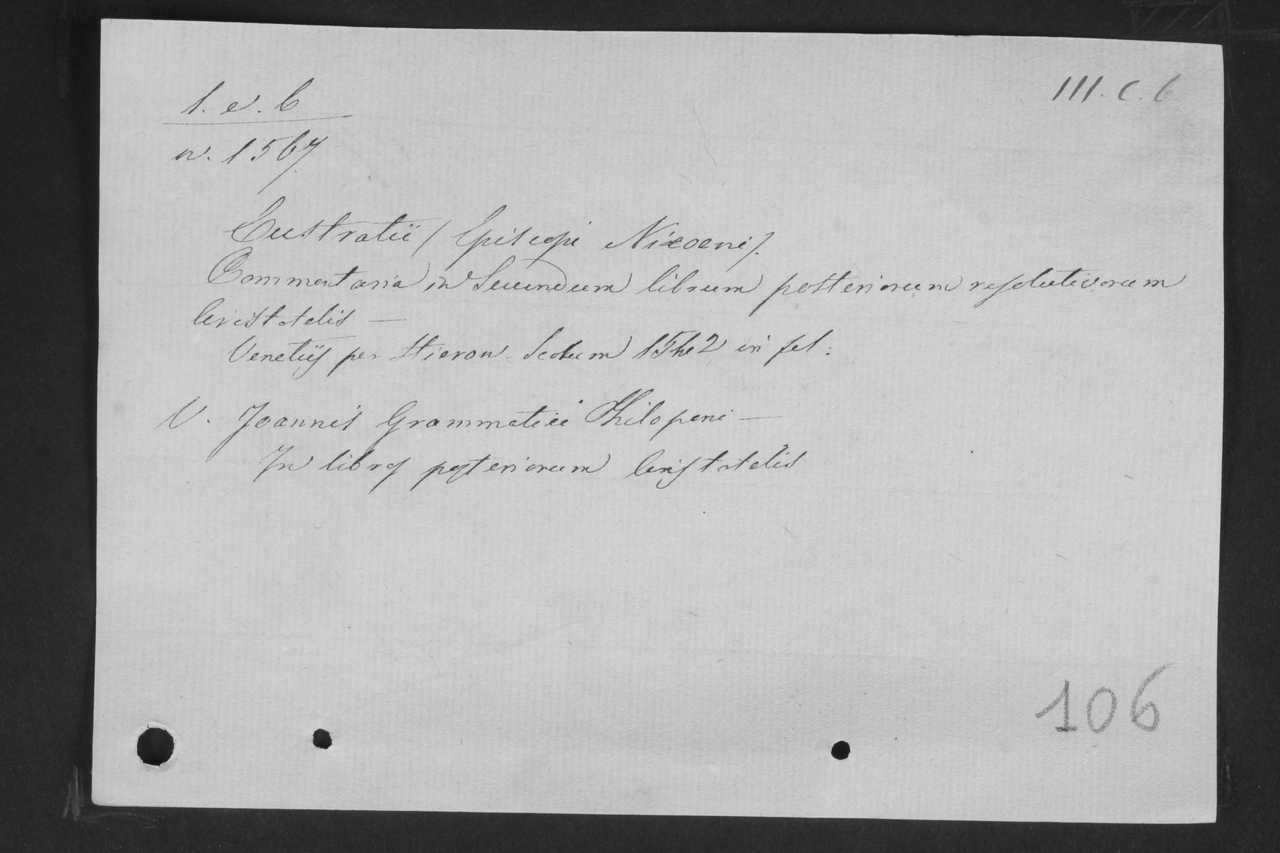 1. e. b
III. C. 6
n. 1567
Eustratii (Episcopi Nicoeni).
Commentaria in Secundum librum posteriorum resolutivorum
Aristotelis —
Venetiis per Hieron. Scotum 1542 in fol:
V. Joannis Grammatici Philoponi —
In libros posteriorum Aristotelis
106